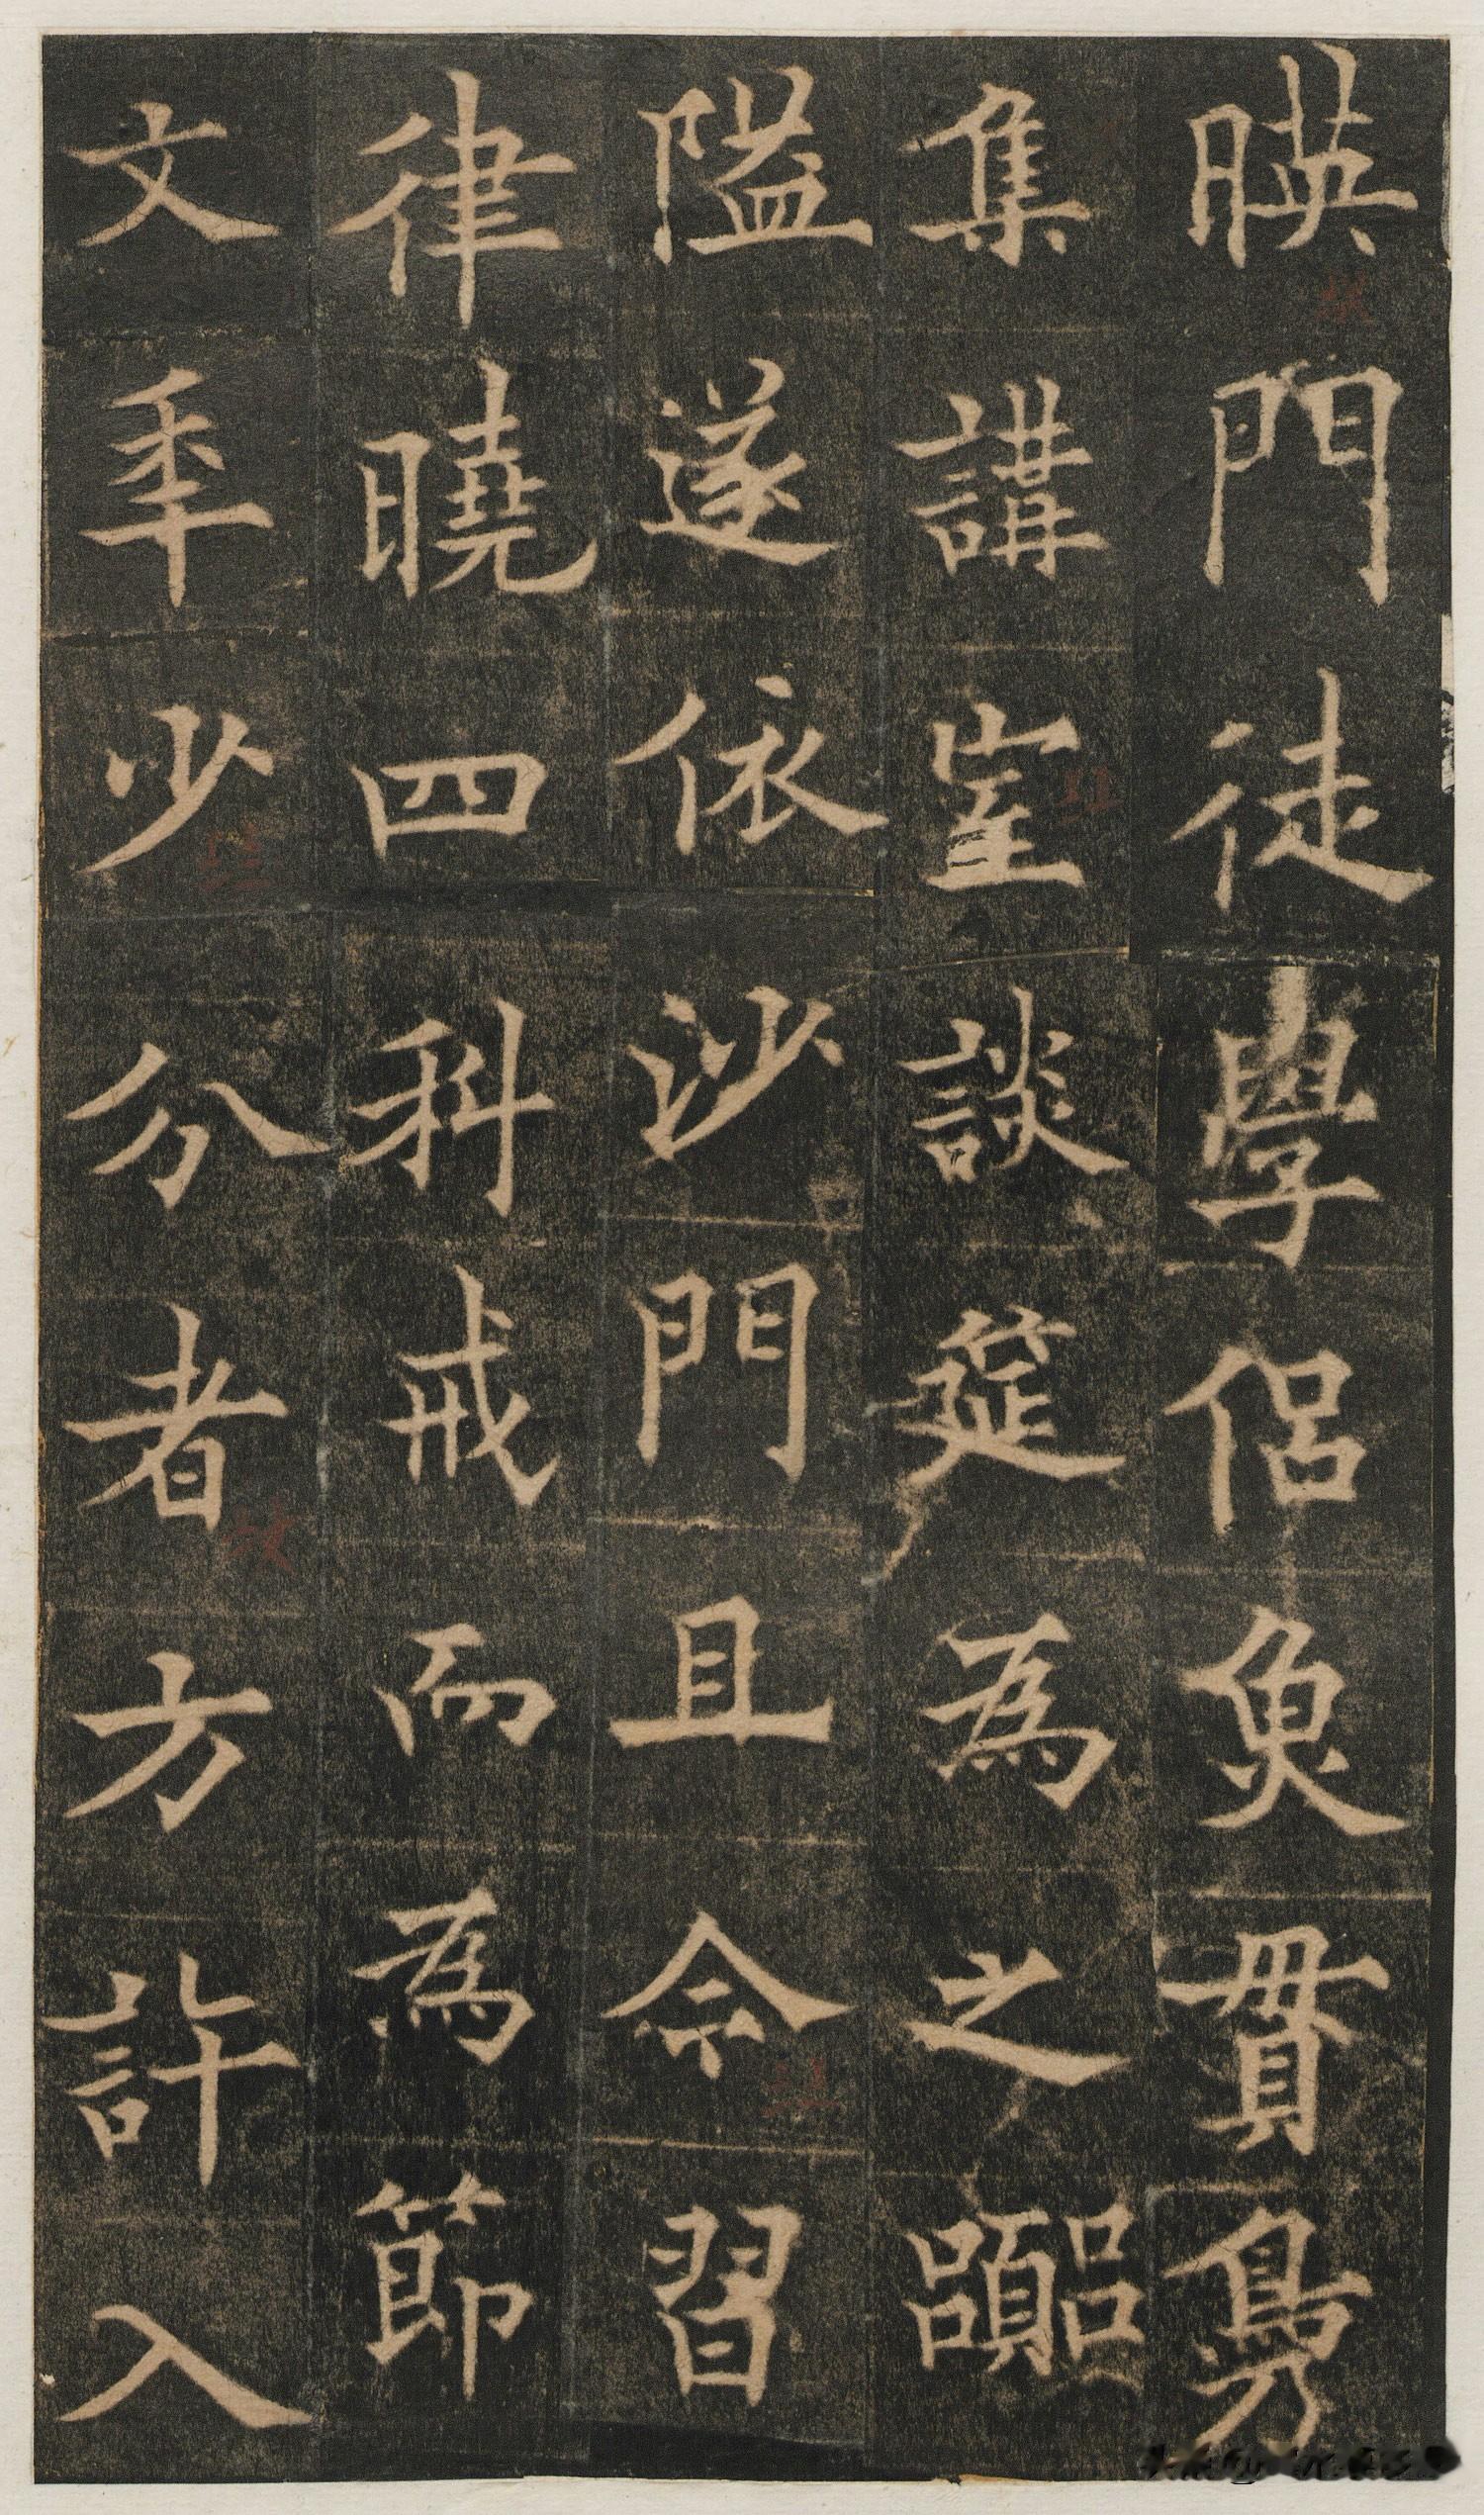 暎門徒學侶魚貫鳧
集講堂談筵為之囂
隘遂依沙門且令習
律曉四科戒而為節
文秊少分者方許入